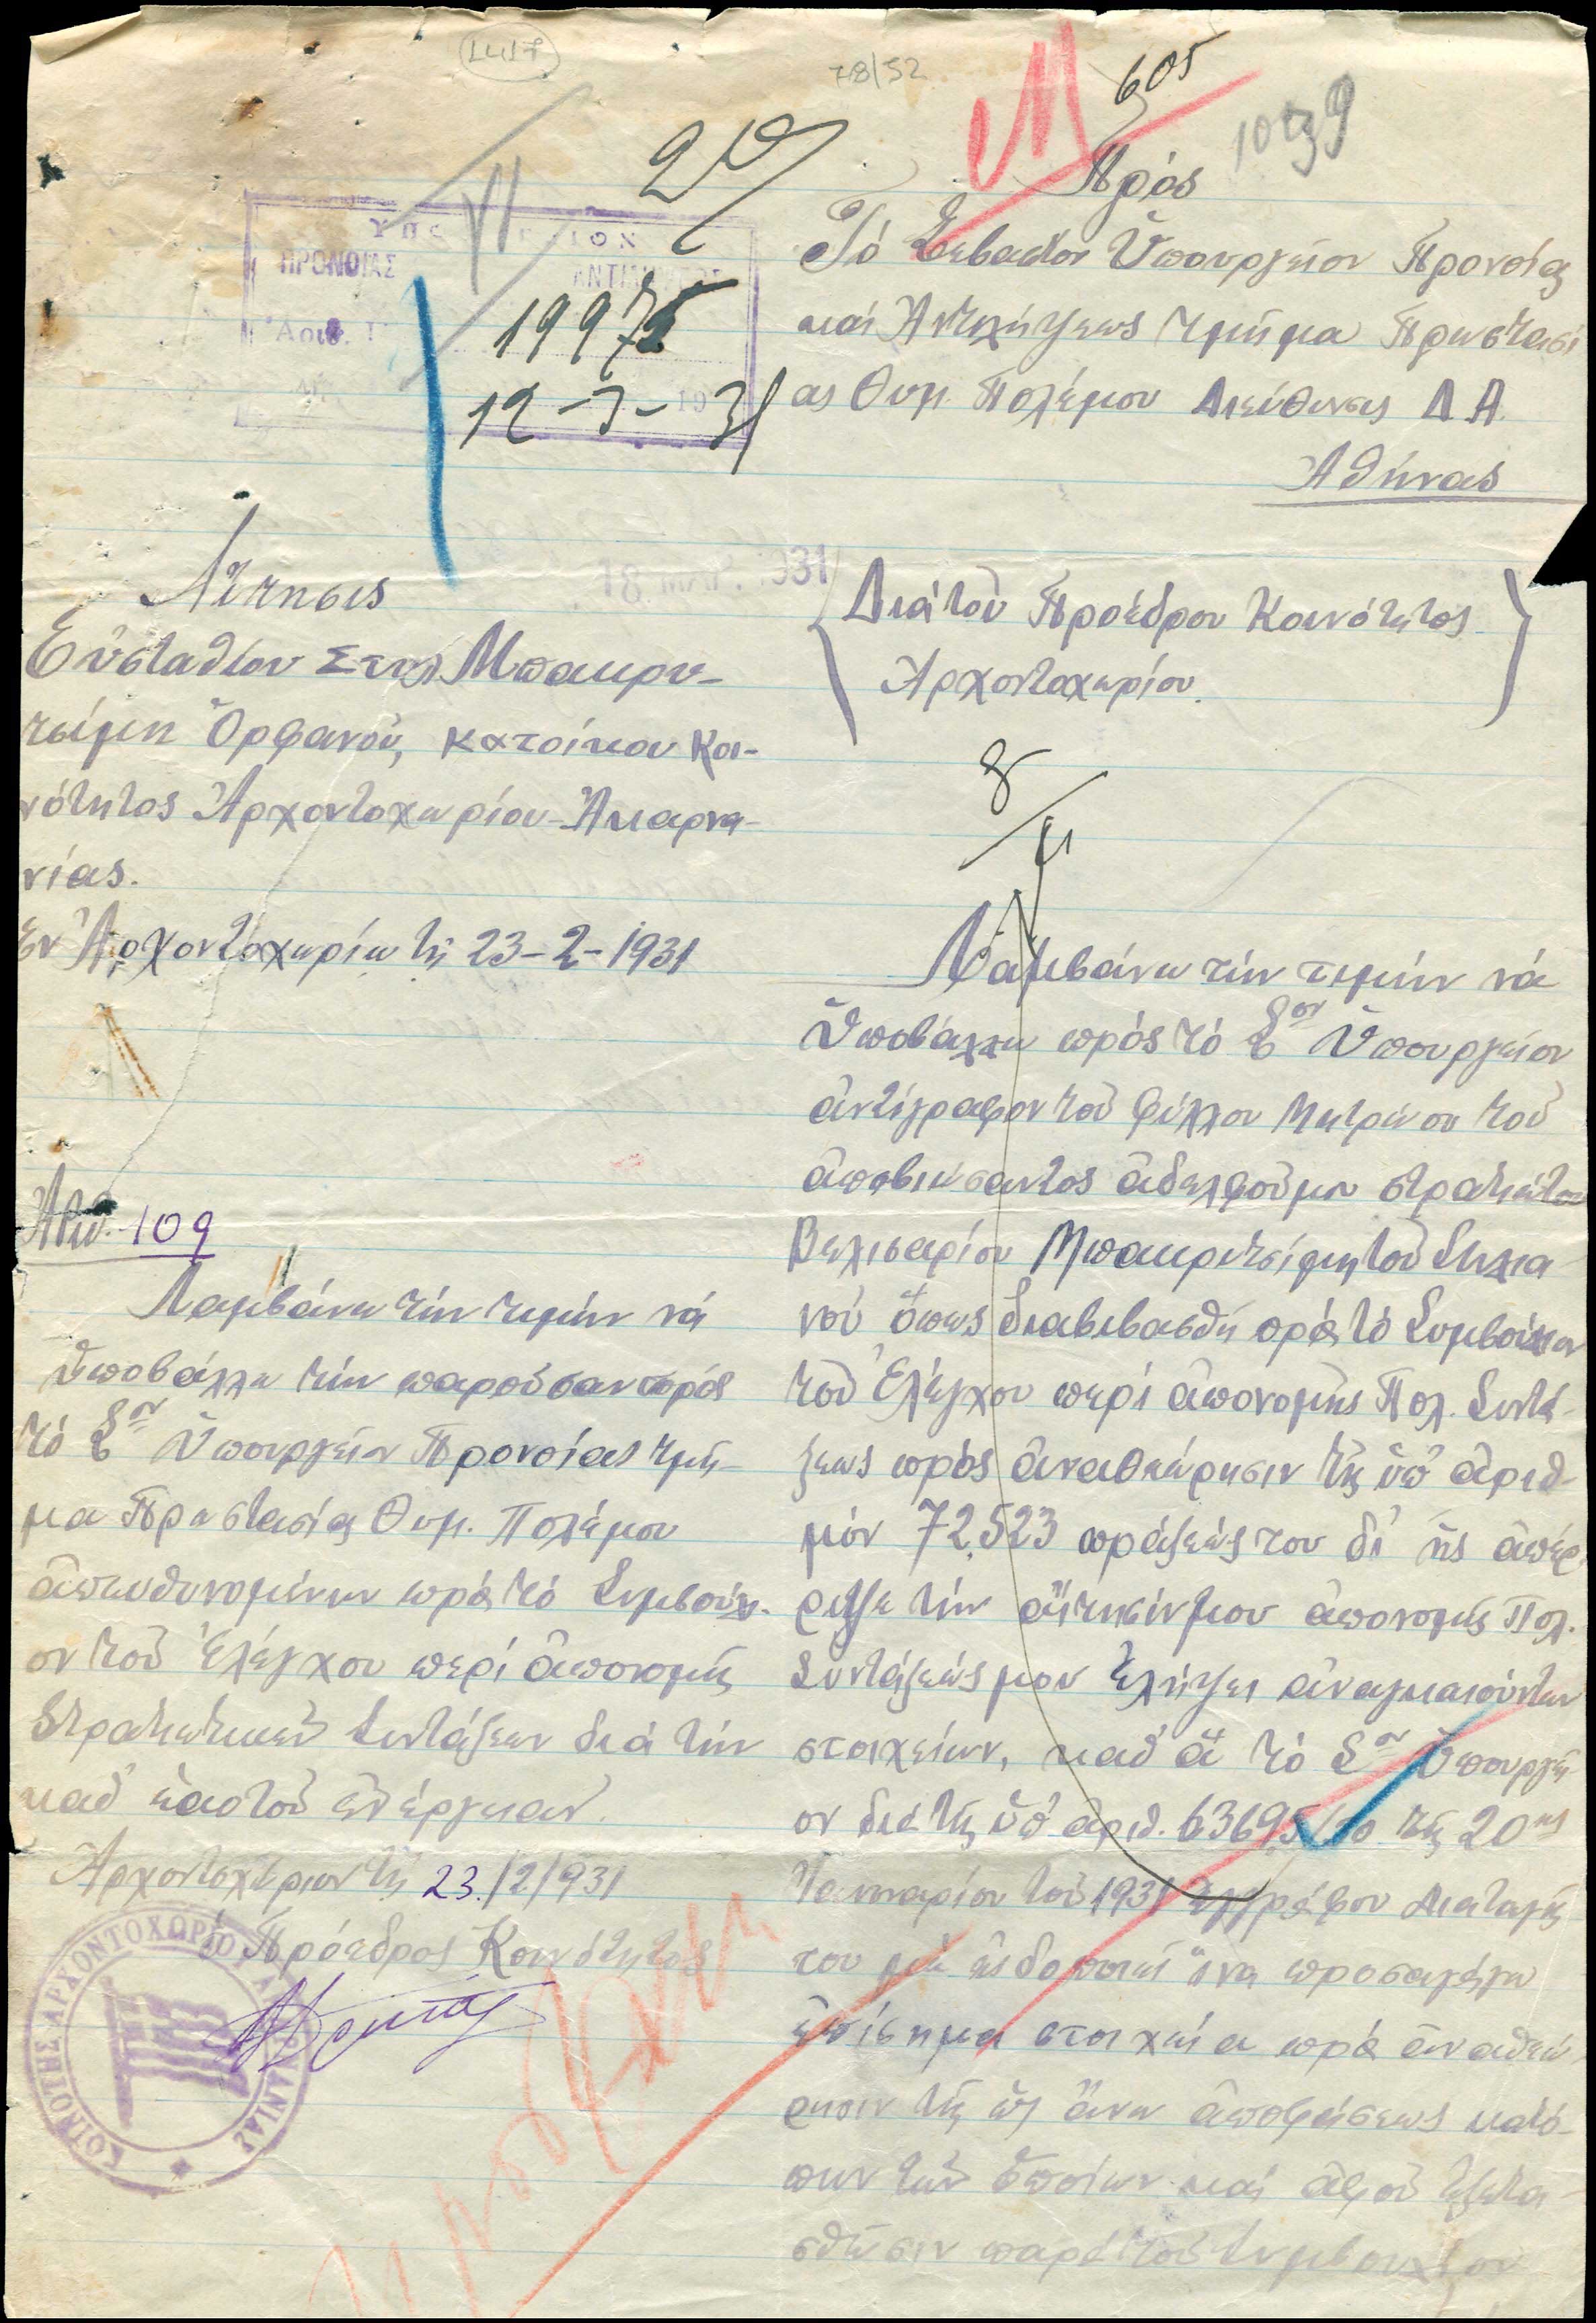 1417
78/52
605
Πρός
Τό Σεβαστόν Ὑπουργεῖον Προνοίας
καί Ἀντιλήψεως τμῆμα Προστασί
ας Θυμ. Πολέμου Διεύθυνσις Δ Α.
Ἀθήνας
ΠΡΟΝΟΙΑΣ
Ἀριθ. Π
19975
12-3-31
18 ΜΑΡ. 1931
Διά τοῦ Προέδρου Κοινότητος
Ἀρχοντοχωρίου.
Αἴτησις
Εὐσταθίου Στυλ Μπακρυ-
τσίμη Ὀρφανοῦ, κατοίκου Κοι-
νότητος Ἀρχοντοχωρίου-Ἀκαρνα-
νίας.
Ἐν Ἀρχοντοχωρίω τῇ 23-2-1931
Ἀριθ. 109
Λαμβάνω τήν τιμήν νά
ὑποβάλλω τήν παροῦσαν πρός
τό Σον Ὑπουργεῖον Προνοίας τμῆ-
μα Προστασίας Θυμ. Πολέμου
ἀπευθυνομένην πρός τό Συμβούλι-
ον τοῦ Ἐλέγχου περί ἀπονομῆς
Στρατιωτικῶν Συντάξεων διά τήν
καθ' ἑαυτοῦ ἐνέργειαν.
Ἀρχοντοχώριον τῇ 23/2/931
ὁ Πρόεδρος Κοινότητος
ΚΟΙΝΟΤΗΣ ΑΡΧΟΝΤΟΧΩΡΙΟΥ ΑΚΑΡΝΑΝΙΑΣ
8
Λαμβάνω τήν τιμήν νά
ὑποβάλλω πρός τό Σον Ὑπουργεῖον
ἀντίγραφον τοῦ φύλλου Μητρώου τοῦ
ἀποβιώσαντος ἀδελφοῦ μου στρατιώτου
Βελισαρίου Μπακρυτσίμη τοῦ Στυλια
νοῦ ὅπως διαβιβασθῆ πρός τό Συμβούλιον
τοῦ Ἐλέγχου περί ἀπονομῆς Πολ. Συντά-
ξεως πρός ἀναθεώρησιν τῆς ὑπ' ἀριθ-
μόν 72.523 πράξεώς του δι' ἧς ἀπέρ
ριψε τήν αἴτησίν μου ἀπονομῆς Πολ.
Συντάξεώς μου ἐλλείψει ἀναγκαιούντων
στοιχείων, καθ' ἅ τό Σον Ὑπουργεῖ
ον διά τῆς ὑπ' ἀριθ. 63695/30 τῆς 20ης
Ἰανουαρίου τοῦ 1931 ἐγγράφου Διαταγῆς
του μέ εἰδοποιεῖ ἵνα προσαγάγω
ἐπίσημα στοιχεῖα πρός ἀναθεώ
ρησιν τῆς ὡς ἄνω ἀποφάσεως κατό-
πιν τῶν ὁποίων καί ἀφοῦ ἐξετα-
σθῶσιν παρά τοῦ Συμβουλίου